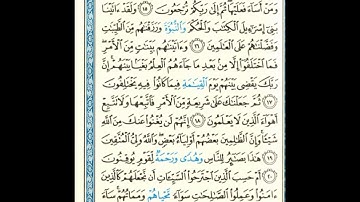 وَمَنْ أَسَاءَ فَعَلَيْهَا ثُمَّ إِلَىٰ رَبِّكُمْ تُرْجَعُونَ ١٥ وَلَقَدْ ءَاتَيْنَا
بَنِي إِسْرَٰٓءِيلَ الْكِتَٰبَ وَالْحُكْمَ وَالنُّبُوَّةَ وَرَزَقْنَٰهُم مِّنَ الطَّيِّبَٰتِ
وَفَضَّلْنَٰهُمْ عَلَى الْعَٰلَمِينَ ١٦ وَءَاتَيْنَٰهُم بَيِّنَٰتٍ مِّنَ الْأَمْرِ
فَمَا اخْتَلَفُوا إِلَّا مِنۢ بَعْدِ مَا جَاءَهُمُ الْعِلْمُ بَغْيًۢا بَيْنَهُمْ إِنَّ
رَبَّكَ يَقْضِي بَيْنَهُمْ يَوْمَ الْقِيَٰمَةِ فِيمَا كَانُوا فِيهِ يَخْتَلِفُونَ
١٧ ثُمَّ جَعَلْنَٰكَ عَلَىٰ شَرِيعَةٍ مِّنَ الْأَمْرِ فَاتَّبِعْهَا وَلَا تَتَّبِعْ
أَهْوَاءَ الَّذِينَ لَا يَعْلَمُونَ ١٨ إِنَّهُمْ لَن يُغْنُوا عَنكَ مِنَ اللَّهِ
شَيْـًٔا وَإِنَّ الظَّٰلِمِينَ بَعْضُهُمْ أَوْلِيَاءُ بَعْضٍ وَاللَّهُ وَلِيُّ الْمُتَّقِينَ
١٩ هَٰذَا بَصَٰٓئِرُ لِلنَّاسِ وَهُدًى وَرَحْمَةٌ لِّقَوْمٍ يُوقِنُونَ
٢٠ أَمْ حَسِبَ الَّذِينَ اجْتَرَحُوا السَّيِّـَٔاتِ أَن نَّجْعَلَهُمْ كَالَّذِينَ
ءَامَنُوا وَعَمِلُوا الصَّٰلِحَٰتِ سَوَاءً مَّحْيَاهُمْ وَمَمَاتُهُمْ سَاءَ